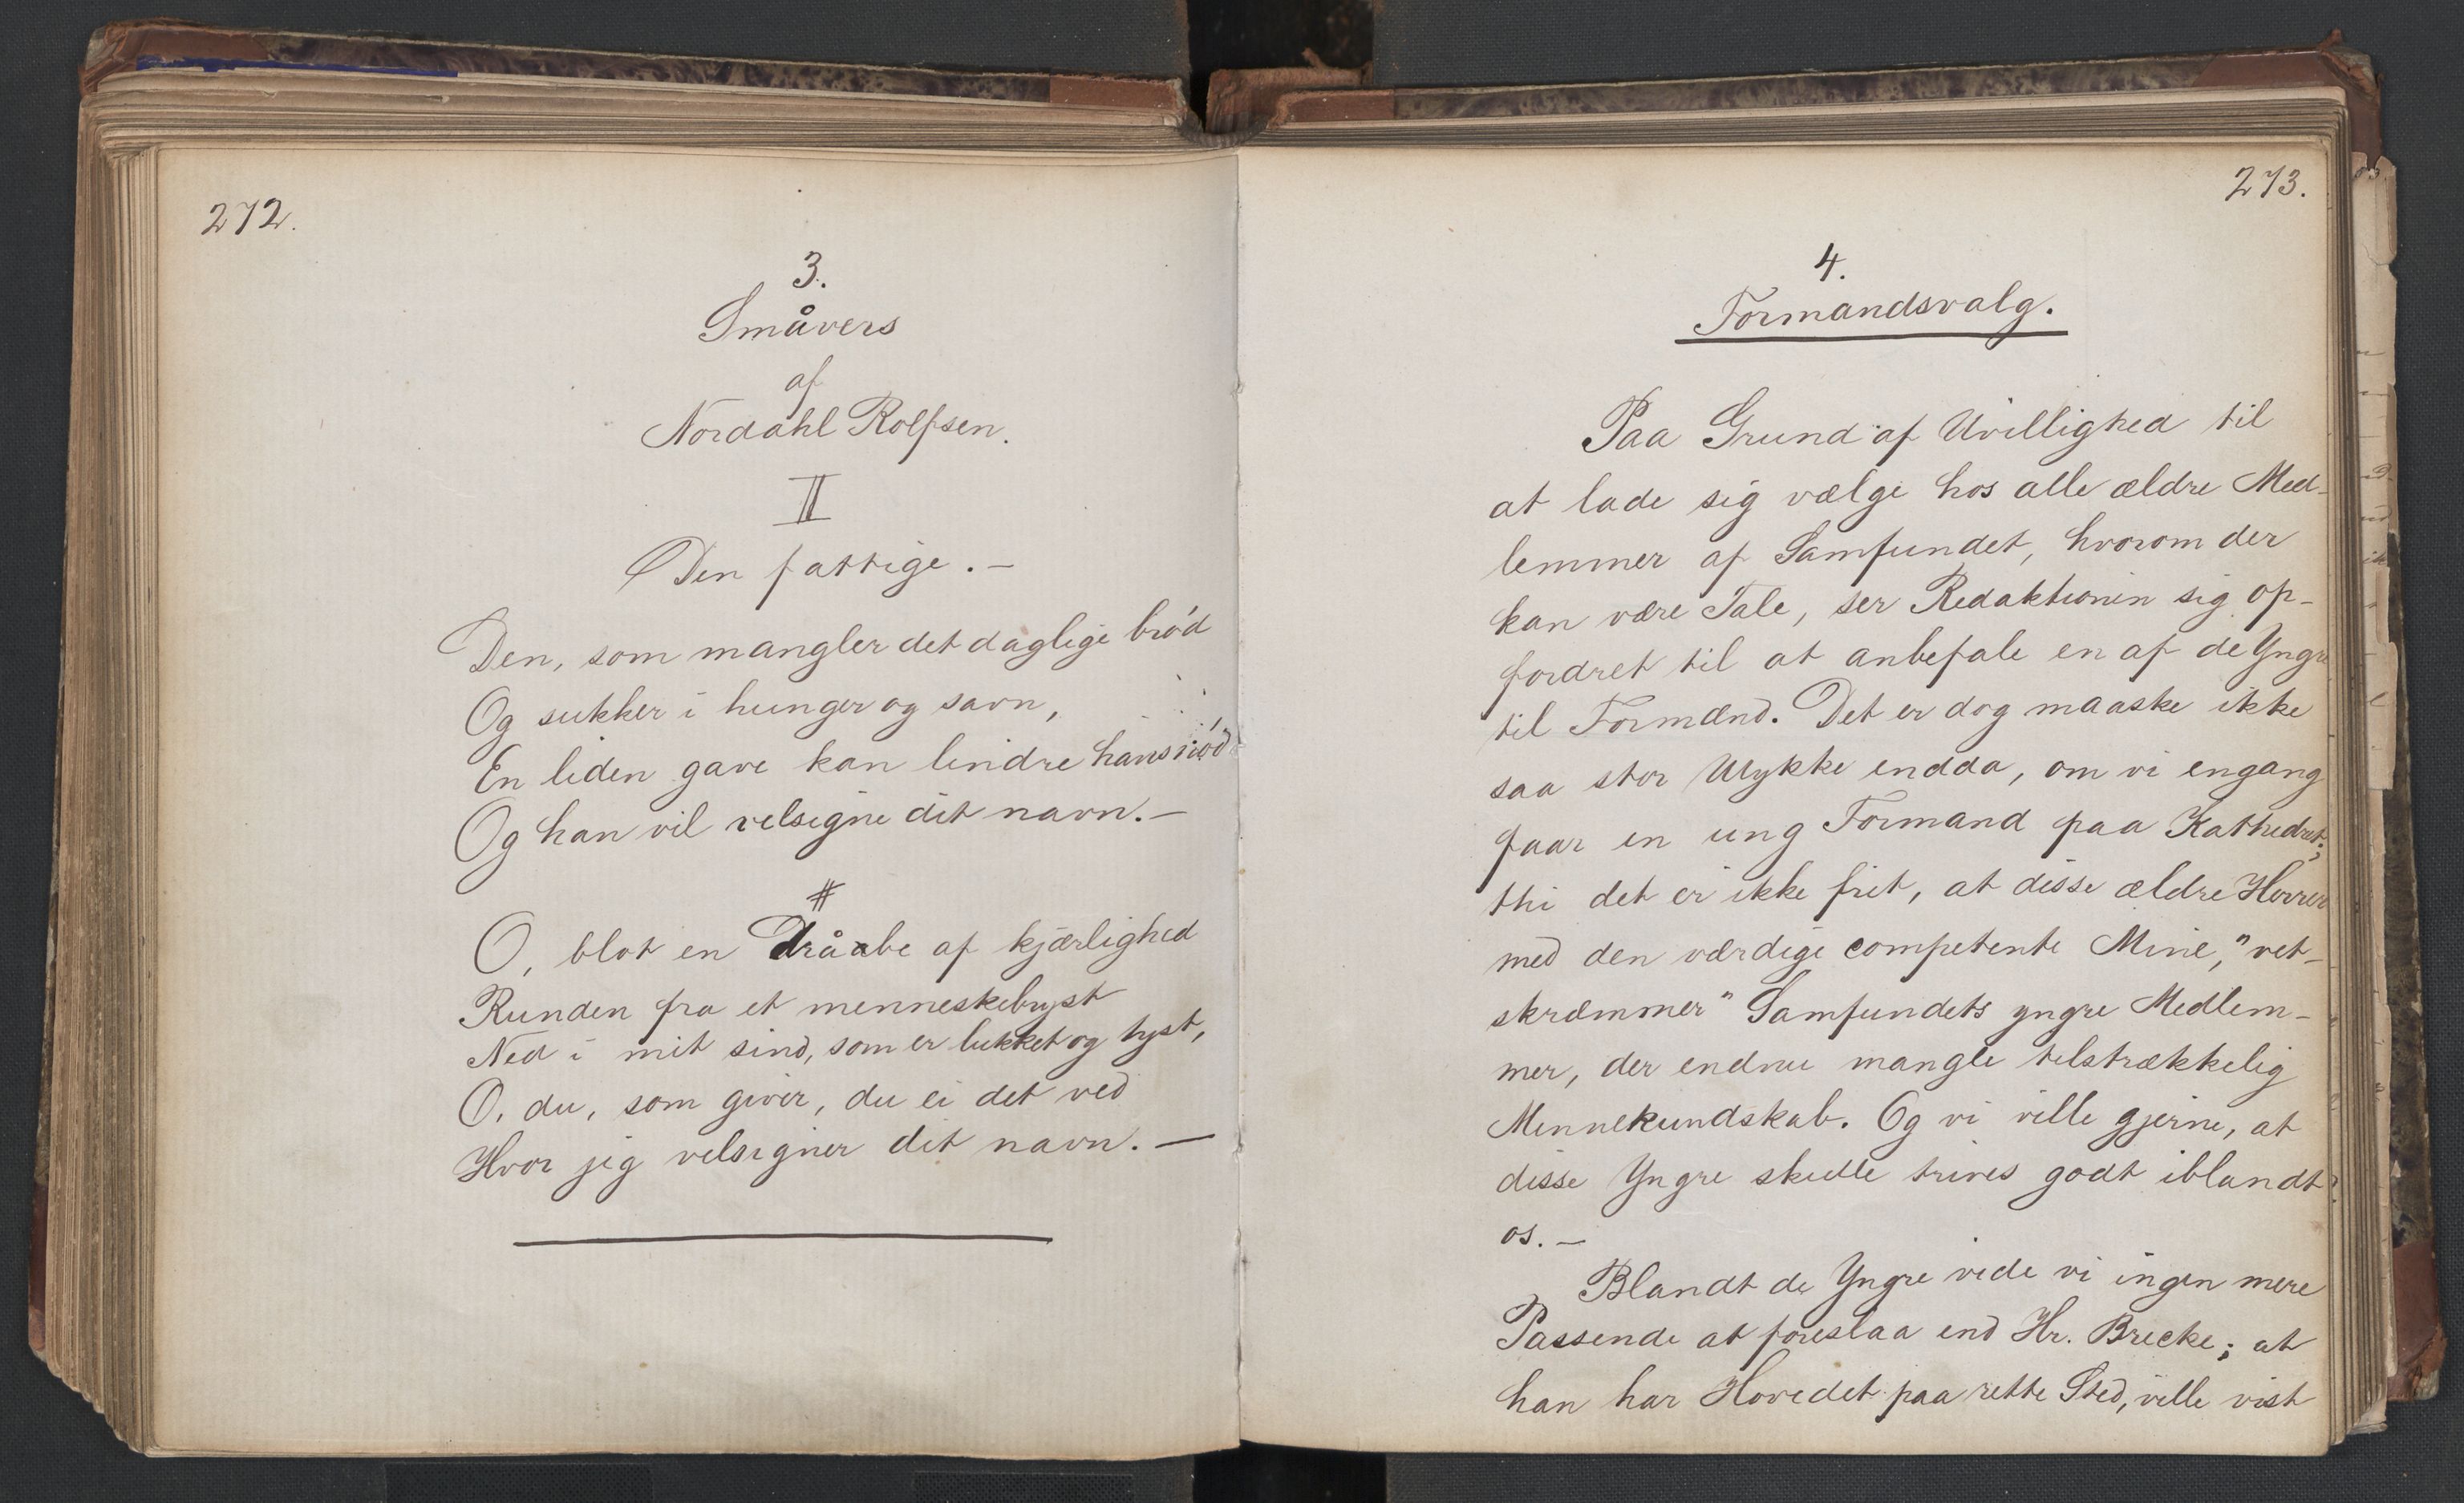 272.
3.
Småvers
af
Nordahl Rolfsen.
II
Den fattige. —
Den, som mangler det daglige brød
Og sukker i hunger og savn,
En liden gave kan lindre hans nød
Og han vil velsigne dit navn. —
#
O, blot en dråabe af kjærlighed
Runden fra et menneskebryst
Ned i mit sind, som er lukket og tyst,
O, du, som giver, du ei det ved
Hvor jeg velsigner dit navn. —
273.
4.
Formandsvalg.
Paa Grund af Uvillighed til
at lade sig vælge hos alle ældre Med-
lemmer af Samfundet, hvorom der
kan være Tale, ser Redaktionen sig op-
fordret til at anbefale en af de Yngre
til Formænd. Det er dog maaske ikke
saa stor Ulykke endda, om vi engang
faar en ung Formand paa Kathedret;
thi det er ikke frit, at disse ældre Herrer
med den værdige competente Mine, "vet-
skræmmer" Samfundets yngre Medlem-
mer, der endnu mangle tilstrækkelig
Minnekundskab. Og vi ville gjerne, at
disse Yngre skulle trives godt iblandt
os. —
Blandt de Yngre vide vi ingen mere
Passende at foreslaa end Hr. Brecke; at
han har Hovedet paa rette Sted, ville vist